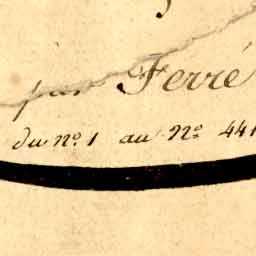 par Ferré
du nº. 1 au Nº 441